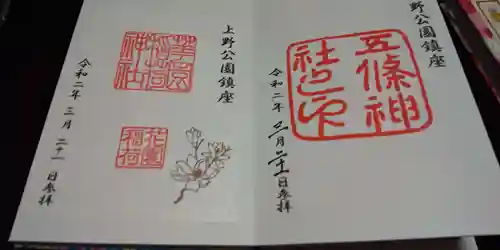 野公園鎮座
五條神
社之印
令和二年三月二十一日参拝
上野公園鎮座
花園
稲荷
神社
花園
稲荷
令和二年三月二十一日参拝